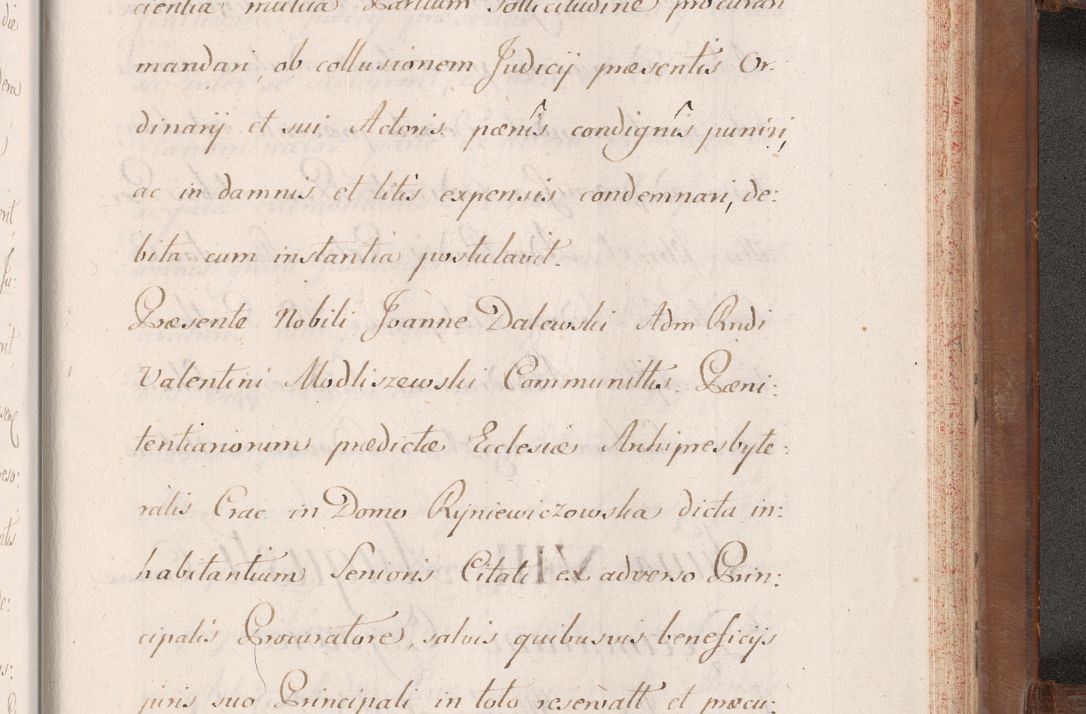 cientia mutua Partium sollicitudine procurari
mandari, ob collusionem Judicij præsentis Or:
dinarij et sui Actoris pœnîs condignîs puniri,
ac in damnis et litis expensis condemnari, de:
bita cum instantia postulavit.
Præsente Nobili Joanne Dalewski Adm Rndi
Valentini Modliszewski Communittis Pæni:
tentiariorum prædictæ Ecclesiæ Archipresbyte:
ralis Crac in Domo Ryniewiczowska dicta in:
habitantium Senioris Citati ex adverso Prin:
cipalis Procuratore, salvis quibusvis beneficijs
juris suo Principali in toto reservatt et præcu: